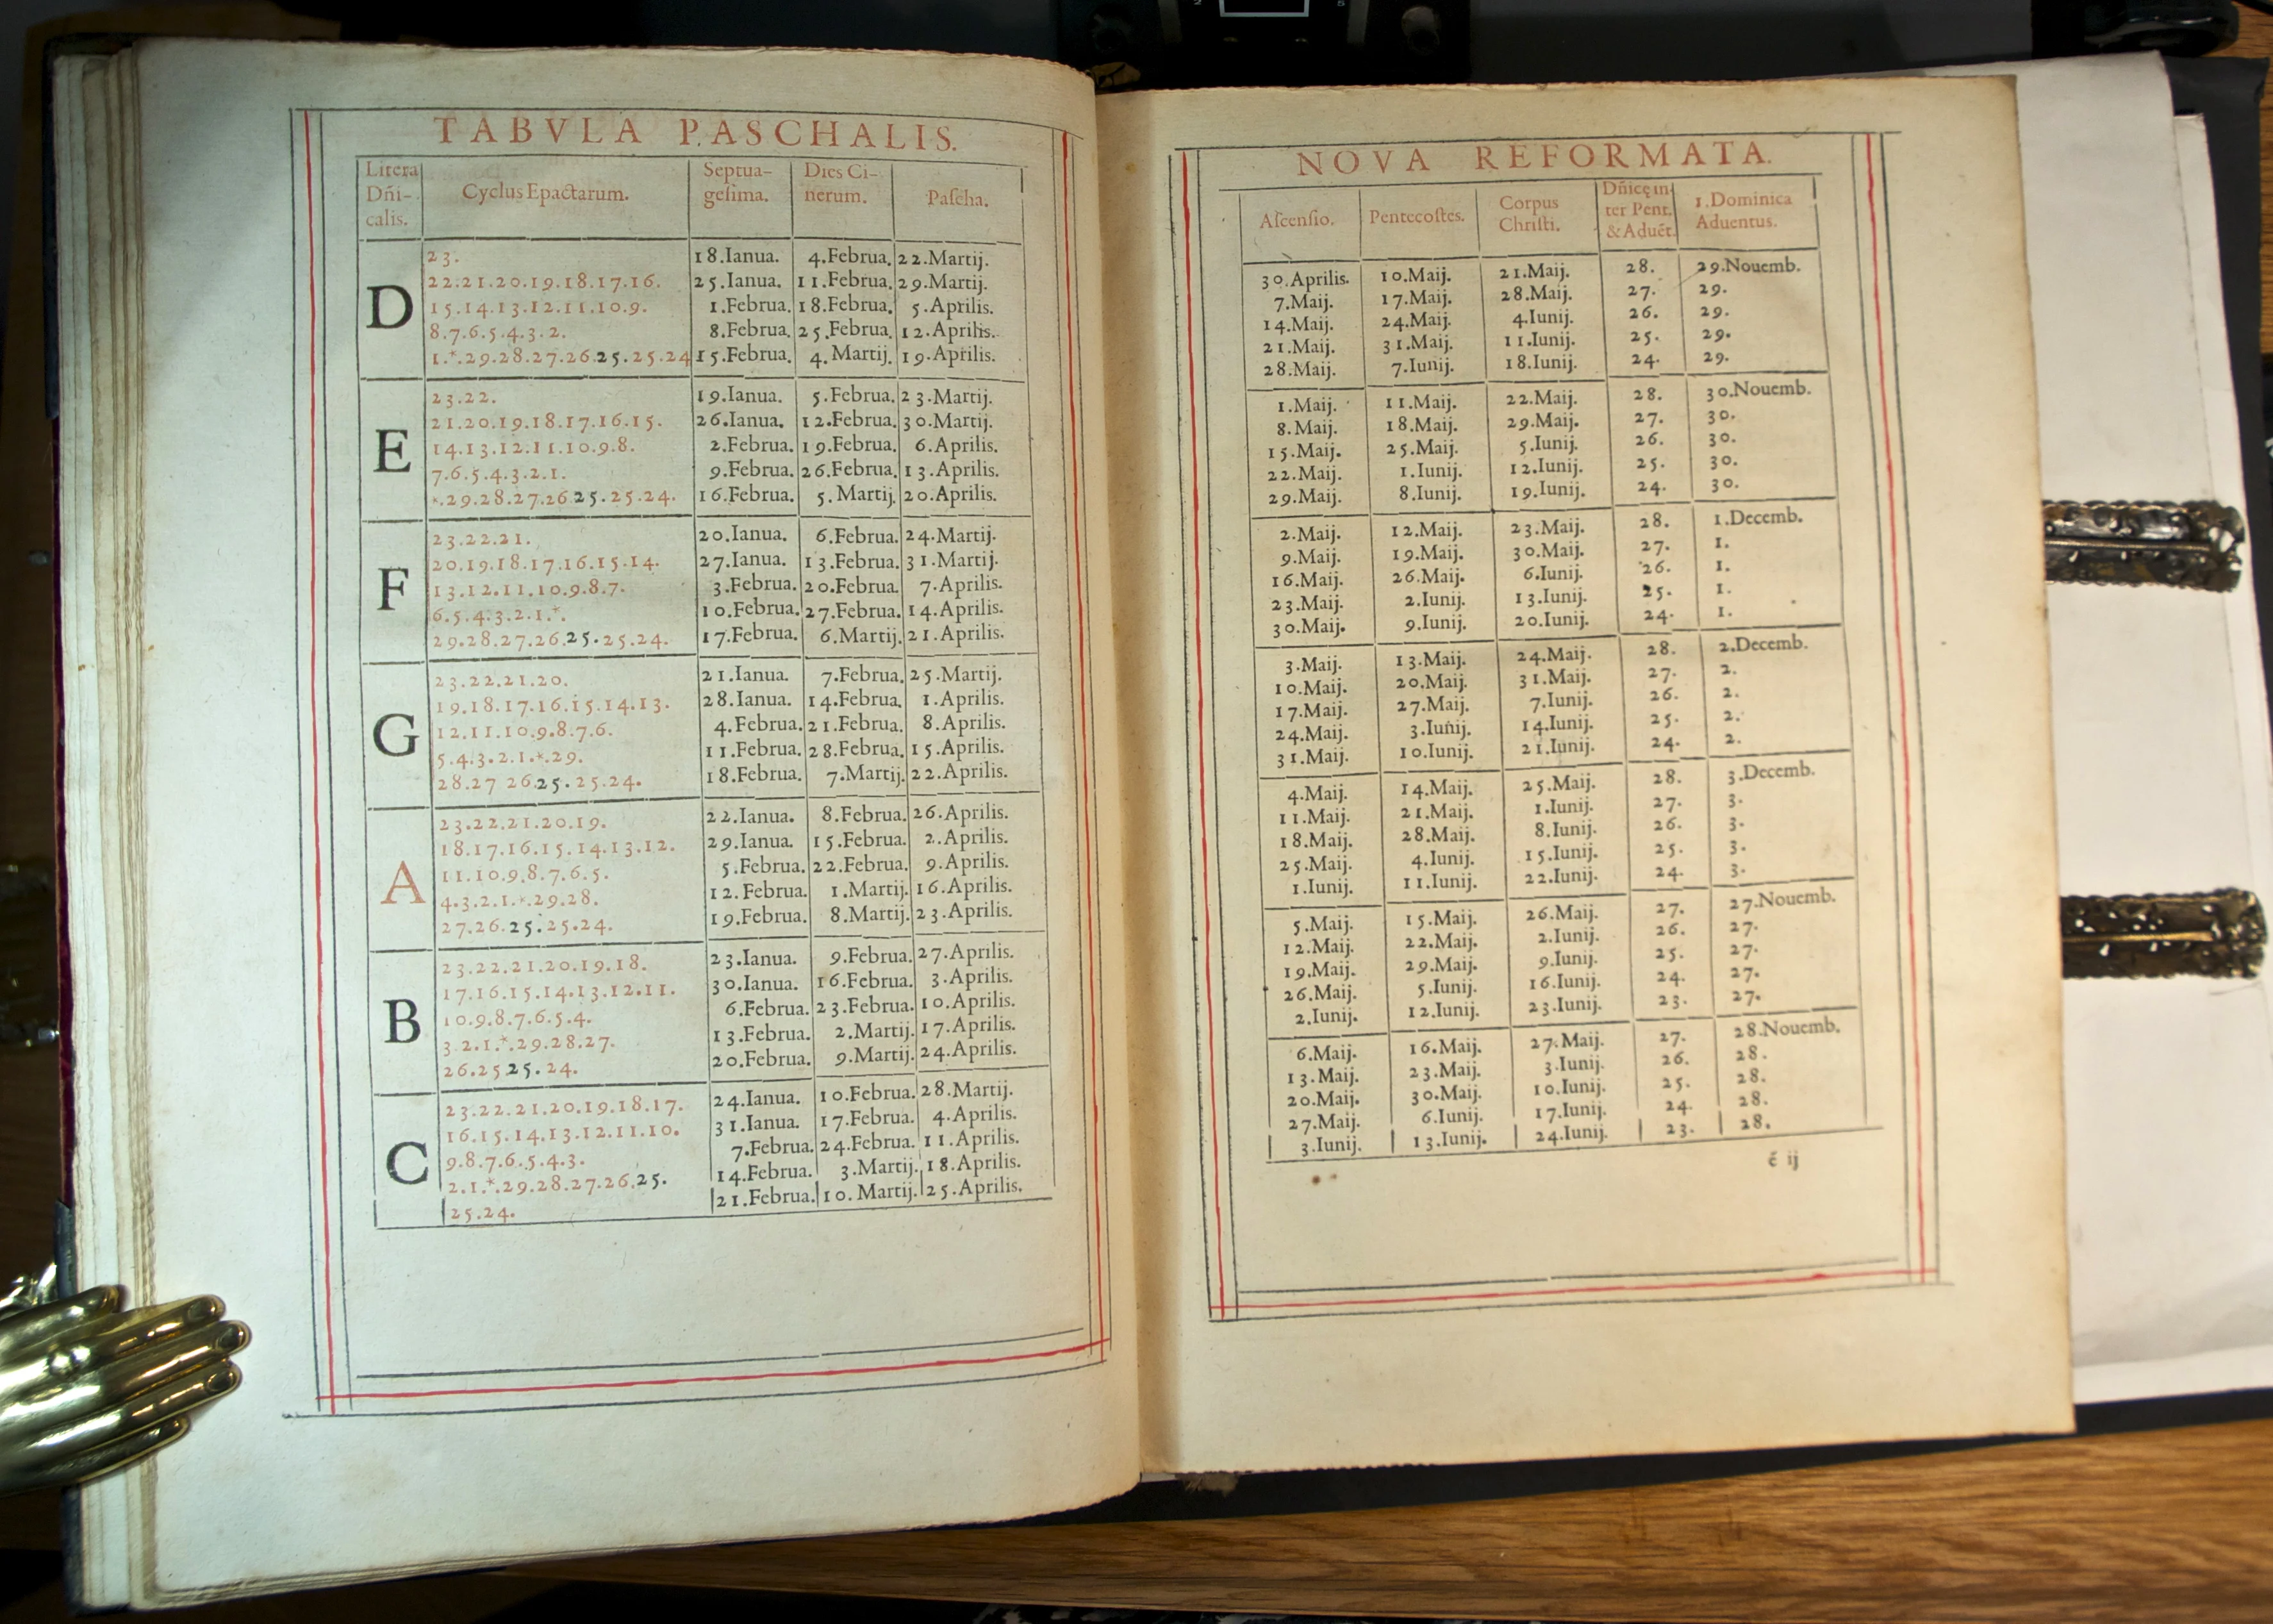 TABVLA PASCHALIS.
Litera Dñi- calis. Cyclus Epactarum. Septua- gesima. Dies Ci- nerum. Pascha.
D
23. 18.Ianua. 4.Februa. 22.Martij.
22.21.20.19.18.17.16. 25.Ianua. 11.Februa. 29.Martij.
15.14.13.12.11.10.9. 1.Februa. 18.Februa. 5.Aprilis.
8.7.6.5.4.3.2. 8.Februa. 25.Februa. 12.Aprilis.
1.*.29.28.27.26.25.25.24 15.Februa. 4.Martij. 19.Aprilis.
E
23.22. 19.Ianua. 5.Februa. 23.Martij.
21.20.19.18.17.16.15. 26.Ianua. 12.Februa. 30.Martij.
14.13.12.11.10.9.8. 2.Februa. 19.Februa. 6.Aprilis.
7.6.5.4.3.2.1. 9.Februa. 26.Februa. 13.Aprilis.
*.29.28.27.26.25.25.24. 16.Februa. 5.Martij. 20.Aprilis.
F
23.22.21. 20.Ianua. 6.Februa. 24.Martij.
20.19.18.17.16.15.14. 27.Ianua. 13.Februa. 31.Martij.
13.12.11.10.9.8.7. 3.Februa. 20.Februa. 7.Aprilis.
6.5.4.3.2.1.*. 10.Februa. 27.Februa. 14.Aprilis.
29.28.27.26.25.25.24. 17.Februa. 6.Martij. 21.Aprilis.
G
23.22.21.20. 21.Ianua. 7.Februa. 25.Martij.
19.18.17.16.15.14.13. 28.Ianua. 14.Februa. 1.Aprilis.
12.11.10.9.8.7.6. 4.Februa. 21.Februa. 8.Aprilis.
5.4.3.2.1.*.29. 11.Februa. 28.Februa. 15.Aprilis.
28.27 26.25.25.24. 18.Februa. 7.Martij. 22.Aprilis.
A
23.22.21.20.19. 22.Ianua. 8.Februa. 26.Aprilis.
18.17.16.15.14.13.12. 29.Ianua. 15.Februa. 2.Aprilis.
11.10.9.8.7.6.5. 5.Februa. 22.Februa. 9.Aprilis.
4.3.2.1.*.29.28. 12.Februa. 1.Martij. 16.Aprilis.
27.26.25.25.24. 19.Februa. 8.Martij. 23.Aprilis.
B
23.22.21.20.19.18. 23.Ianua. 9.Februa. 27.Aprilis.
17.16.15.14.13.12.11. 30.Ianua. 16.Februa. 3.Aprilis.
10.9.8.7.6.5.4. 6.Februa. 23.Februa. 10.Aprilis.
3.2.1.*.29.28.27. 13.Februa. 2.Martij. 17.Aprilis.
26.25 25.24. 20.Februa. 9.Martij. 24.Aprilis.
C
23.22.21.20.19.18.17. 24.Ianua. 10.Februa. 28.Martij.
16.15.14.13.12.11.10. 31.Ianua. 17.Februa. 4.Aprilis.
9.8.7.6.5.4.3. 7.Februa. 24.Februa. 11.Aprilis.
2.1.*.29.28.27.26.25. 14.Februa. 3.Martij. 18.Aprilis.
25.24. 21.Februa. 10.Martij. 25.Aprilis.
NOVA REFORMATA.
Ascensio. Pentecostes. Corpus Christi. Dñicę in- ter Pent. & Aduẽt. 1.Dominica Aduentus.
30.Aprilis. 10.Maij. 21.Maij. 28. 29.Nouemb.
7.Maij. 17.Maij. 28.Maij. 27. 29.
14.Maij. 24.Maij. 4.Iunij. 26. 29.
21.Maij. 31.Maij. 11.Iunij. 25. 29.
28.Maij. 7.Iunij. 18.Iunij. 24. 29.
1.Maij. 11.Maij. 22.Maij. 28. 30.Nouemb.
8.Maij. 18.Maij. 29.Maij. 27. 30.
15.Maij. 25.Maij. 5.Iunij. 26. 30.
22.Maij. 1.Iunij. 12.Iunij. 25. 30.
29.Maij. 8.Iunij. 19.Iunij. 24. 30.
2.Maij. 12.Maij. 23.Maij. 28. 1.Decemb.
9.Maij. 19.Maij. 30.Maij. 27. 1.
16.Maij. 26.Maij. 6.Iunij. 26. 1.
23.Maij. 2.Iunij. 13.Iunij. 25. 1.
30.Maij. 9.Iunij. 20.Iunij. 24. 1.
3.Maij. 13.Maij. 24.Maij. 28. 2.Decemb.
10.Maij. 20.Maij. 31.Maij. 27. 2.
17.Maij. 27.Maij. 7.Iunij. 26. 2.
24.Maij. 3.Iunij. 14.Iunij. 25. 2.
31.Maij. 10.Iunij. 21.Iunij. 24. 2.
4.Maij. 14.Maij. 25.Maij. 28. 3.Decemb.
11.Maij. 21.Maij. 1.Iunij. 27. 3.
18.Maij. 28.Maij. 8.Iunij. 26. 3.
25.Maij. 4.Iunij. 15.Iunij. 25. 3.
1.Iunij. 11.Iunij. 22.Iunij. 24. 3.
5.Maij. 15.Maij. 26.Maij. 27. 27.Nouemb.
12.Maij. 22.Maij. 2.Iunij. 26. 27.
19.Maij. 29.Maij. 9.Iunij. 25. 27.
26.Maij. 5.Iunij. 16.Iunij. 24. 27.
2.Iunij. 12.Iunij. 23.Iunij. 23. 27.
6.Maij. 16.Maij. 27.Maij. 27. 28.Nouemb.
13.Maij. 23.Maij. 3.Iunij. 26. 28.
20.Maij. 30.Maij. 10.Iunij. 25. 28.
27.Maij. 6.Iunij. 17.Iunij. 24. 28.
3.Iunij. 13.Iunij. 24.Iunij. 23. 28.
ẽ ij